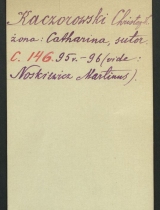 Kaczorowski Christoph
żona: Catharina, sutor.
C. 146. 95v.-96 (vide:
Noskiewicz Martinus).